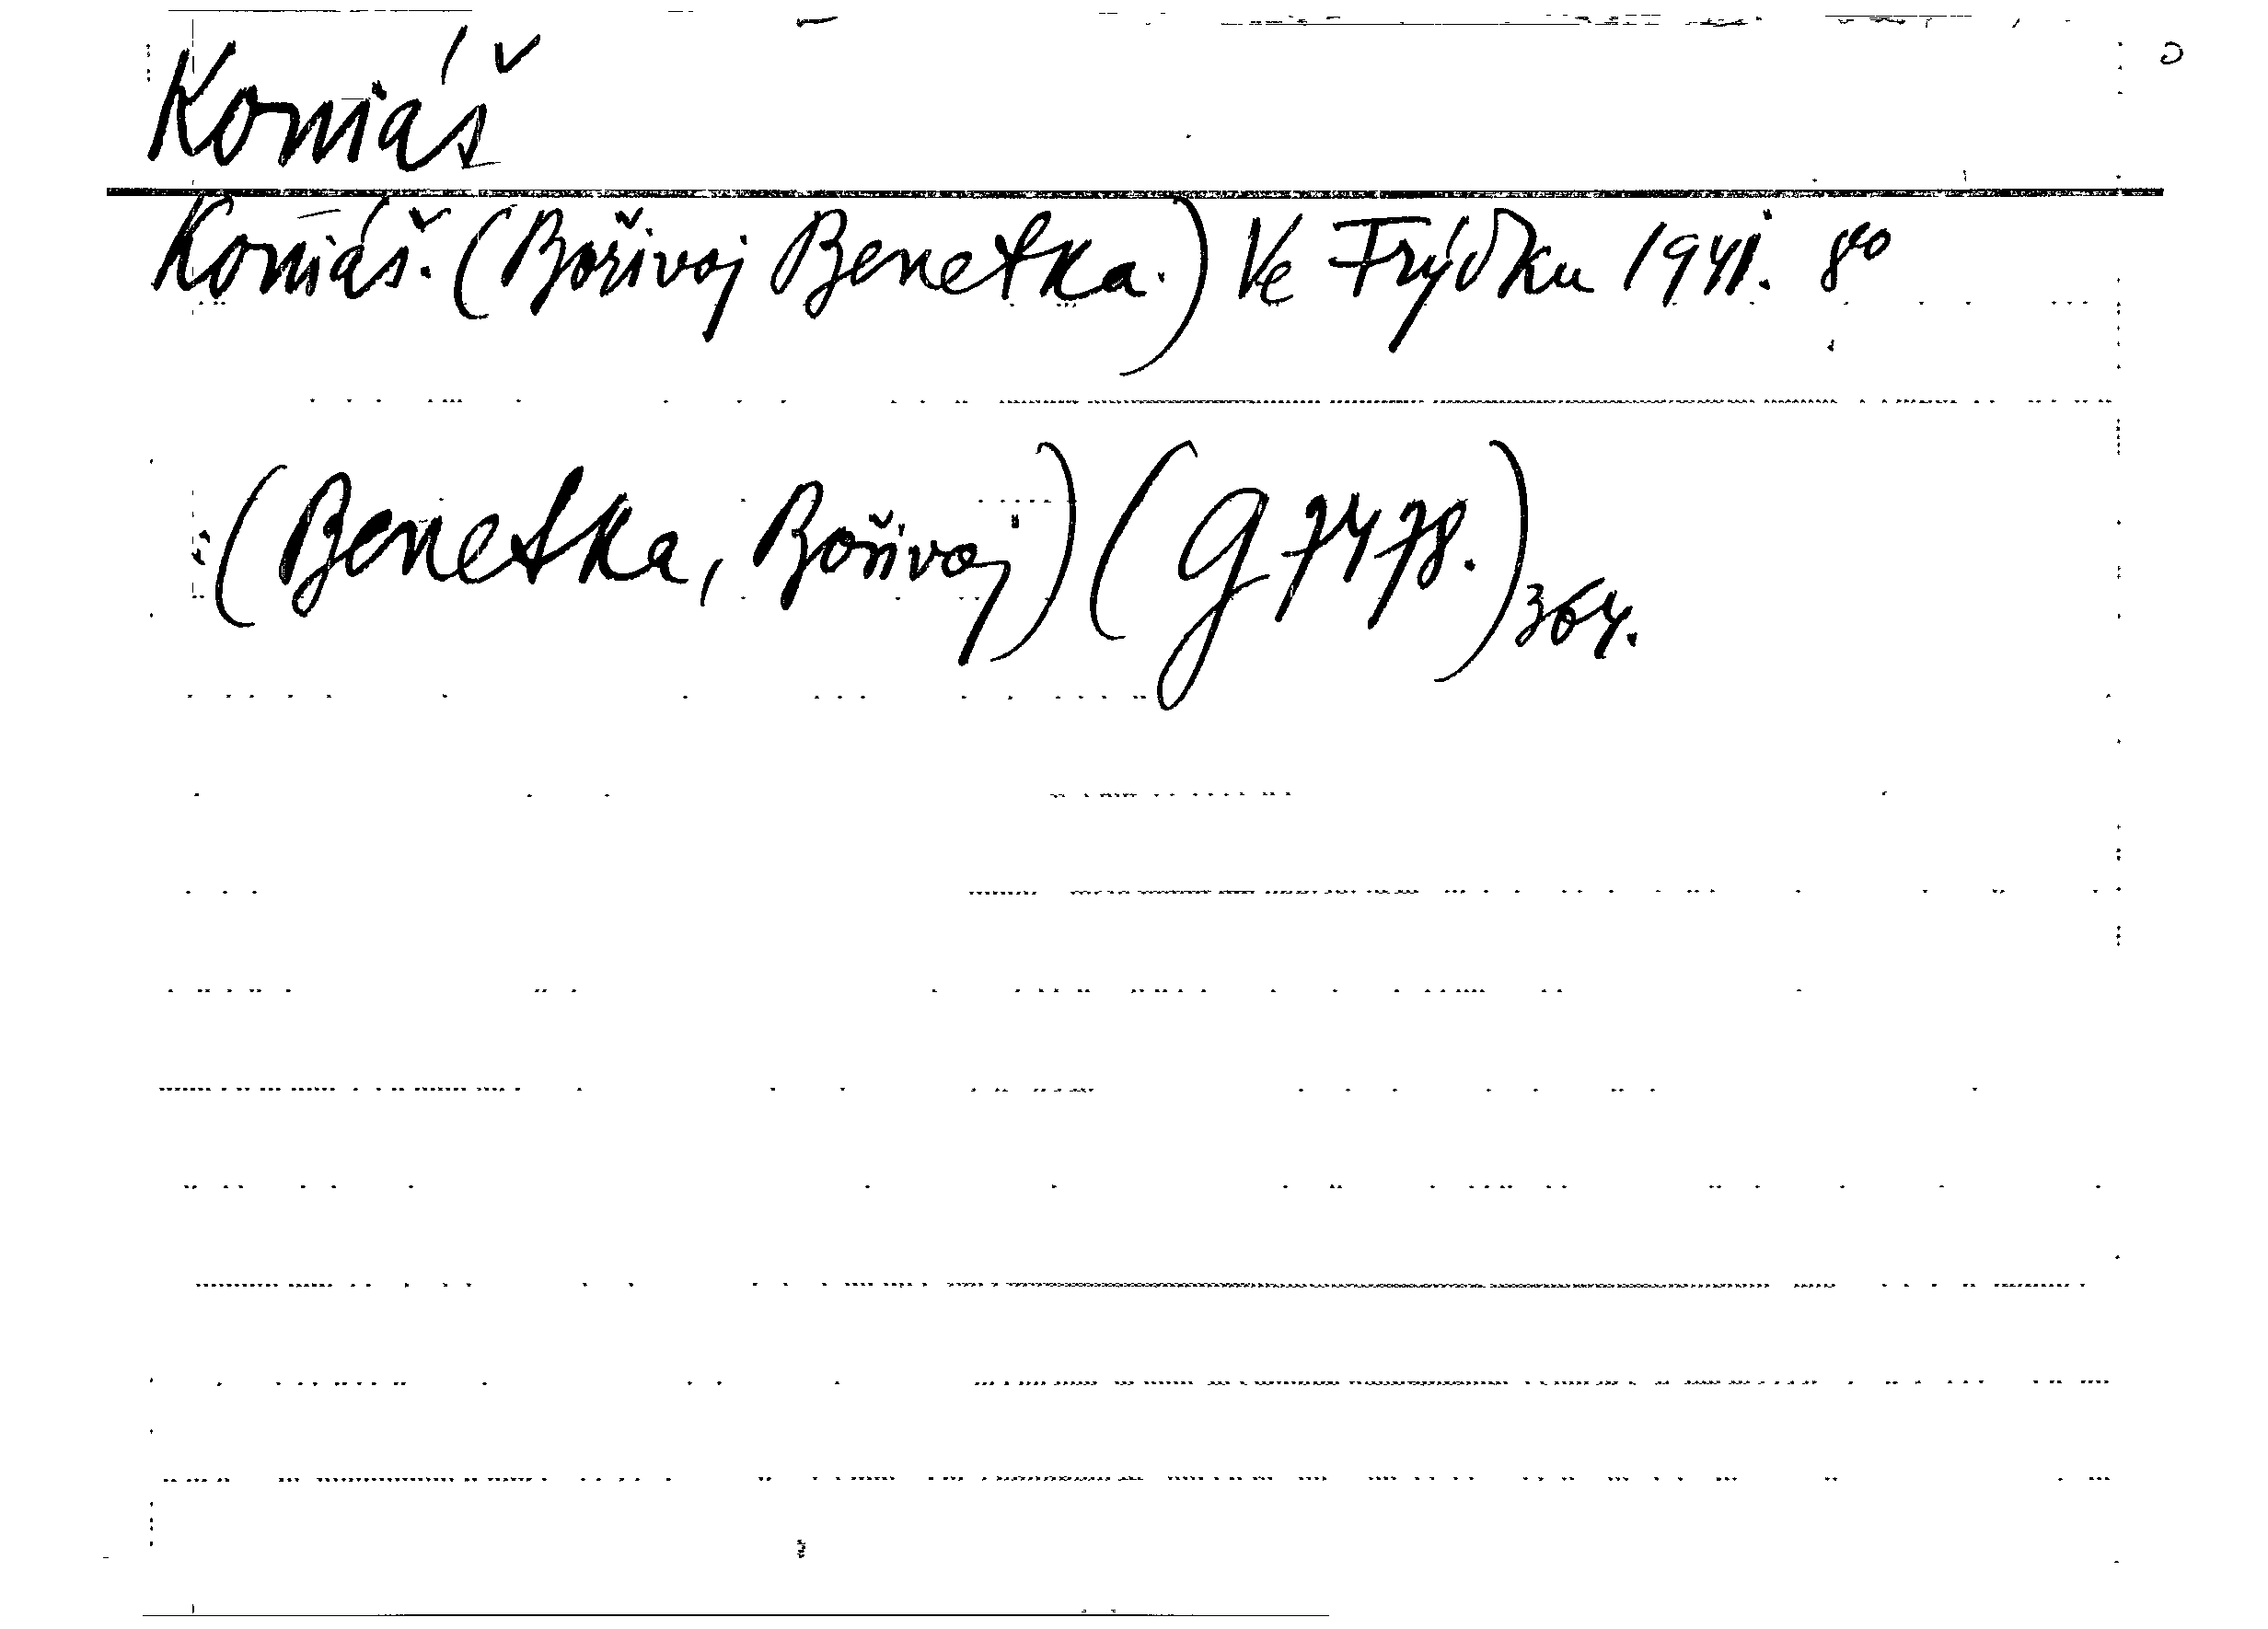 Koniáš
Koniáš. (Bořivoj Benetka.) Ve Frýdku 1941. 8⁰
(Benetka, Bořivoj) (G 7478.) 364.